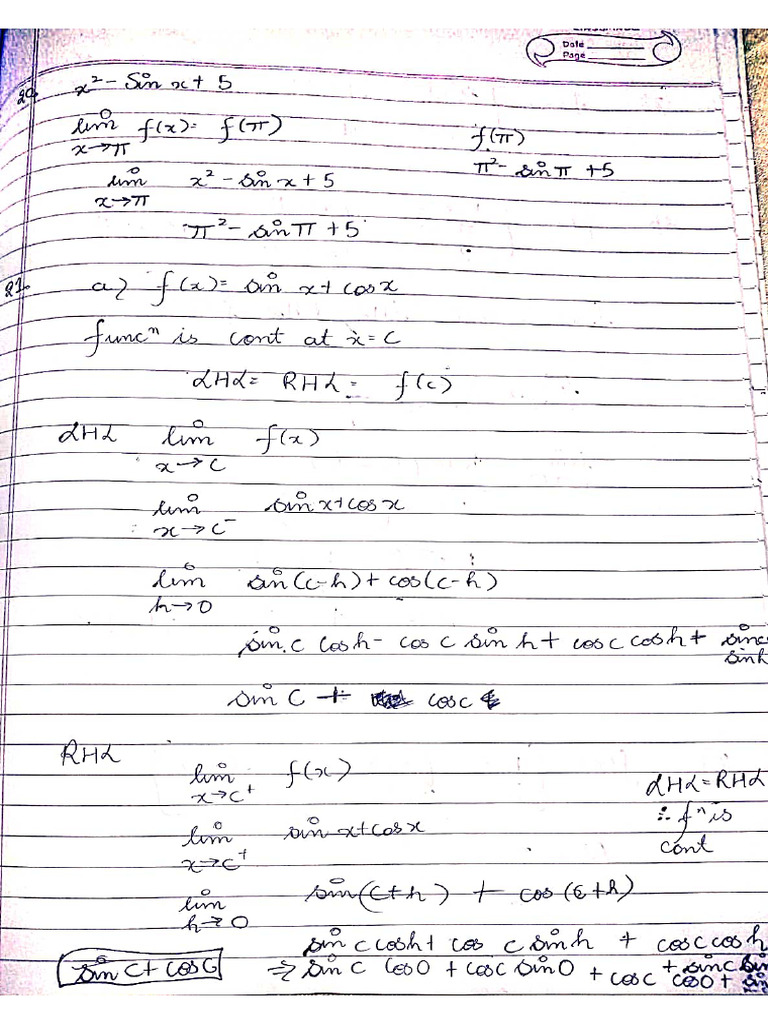 Date
Page
20. x² - Sin x + 5
lim x→π f(x) = f(π)
f(π)
π² - sin π + 5
lim x→π x² - sin x + 5
π² - sin π + 5
21. a) f(x) = sin x + cos x
funcⁿ is cont at x = c
LHL = RHL = f(c)
LHL lim x→c f(x)
lim x→c⁻ sin x + cos x
lim h→0 sin(c-h) + cos(c-h)
sin c cosh - cos c sin h + cos c cosh + sinc sinh
sin C + cosc
RHL lim x→c⁺ f(x)
LHL = RHL
∴ fⁿ is
cont
lim x→c⁺ sin x + cos x
lim h→0 sin(c+h) + cos(c+h)
sin c cosh + cos c sinh + cosc cosh
+ sinc
sin C + cos C ⇒ sin C cos0 + cosc sin0 + cosc cos0 +